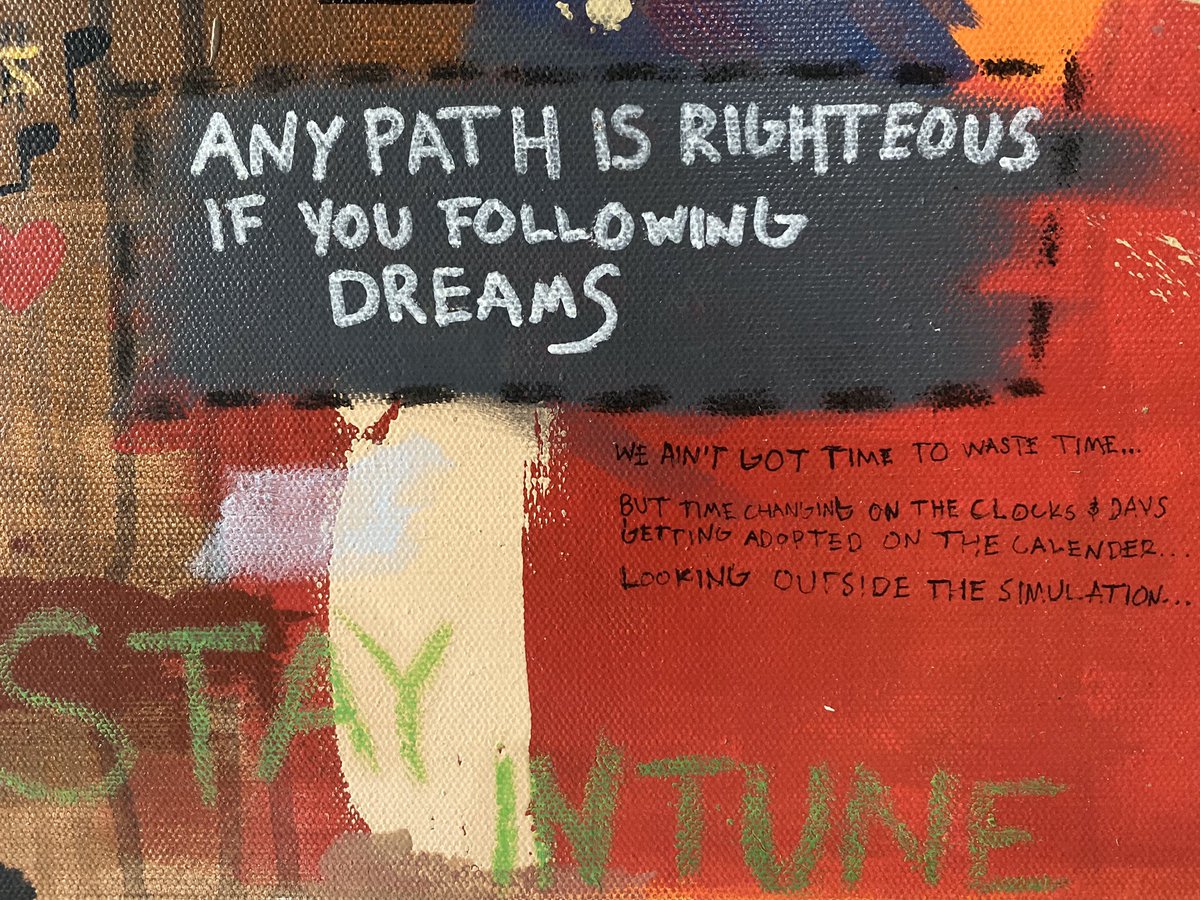 ANY PATH IS RIGHTEOUS
IF YOU FOLLOWING
DREAMS
WE AIN'T GOT TIME TO WASTE TIME...
BUT TIME CHANGING ON THE CLOCKS & DAYS
GETTING ADOPTED ON THE CALENDER...
LOOKING OUTSIDE THE SIMULATION...
STAY
IN TUNE